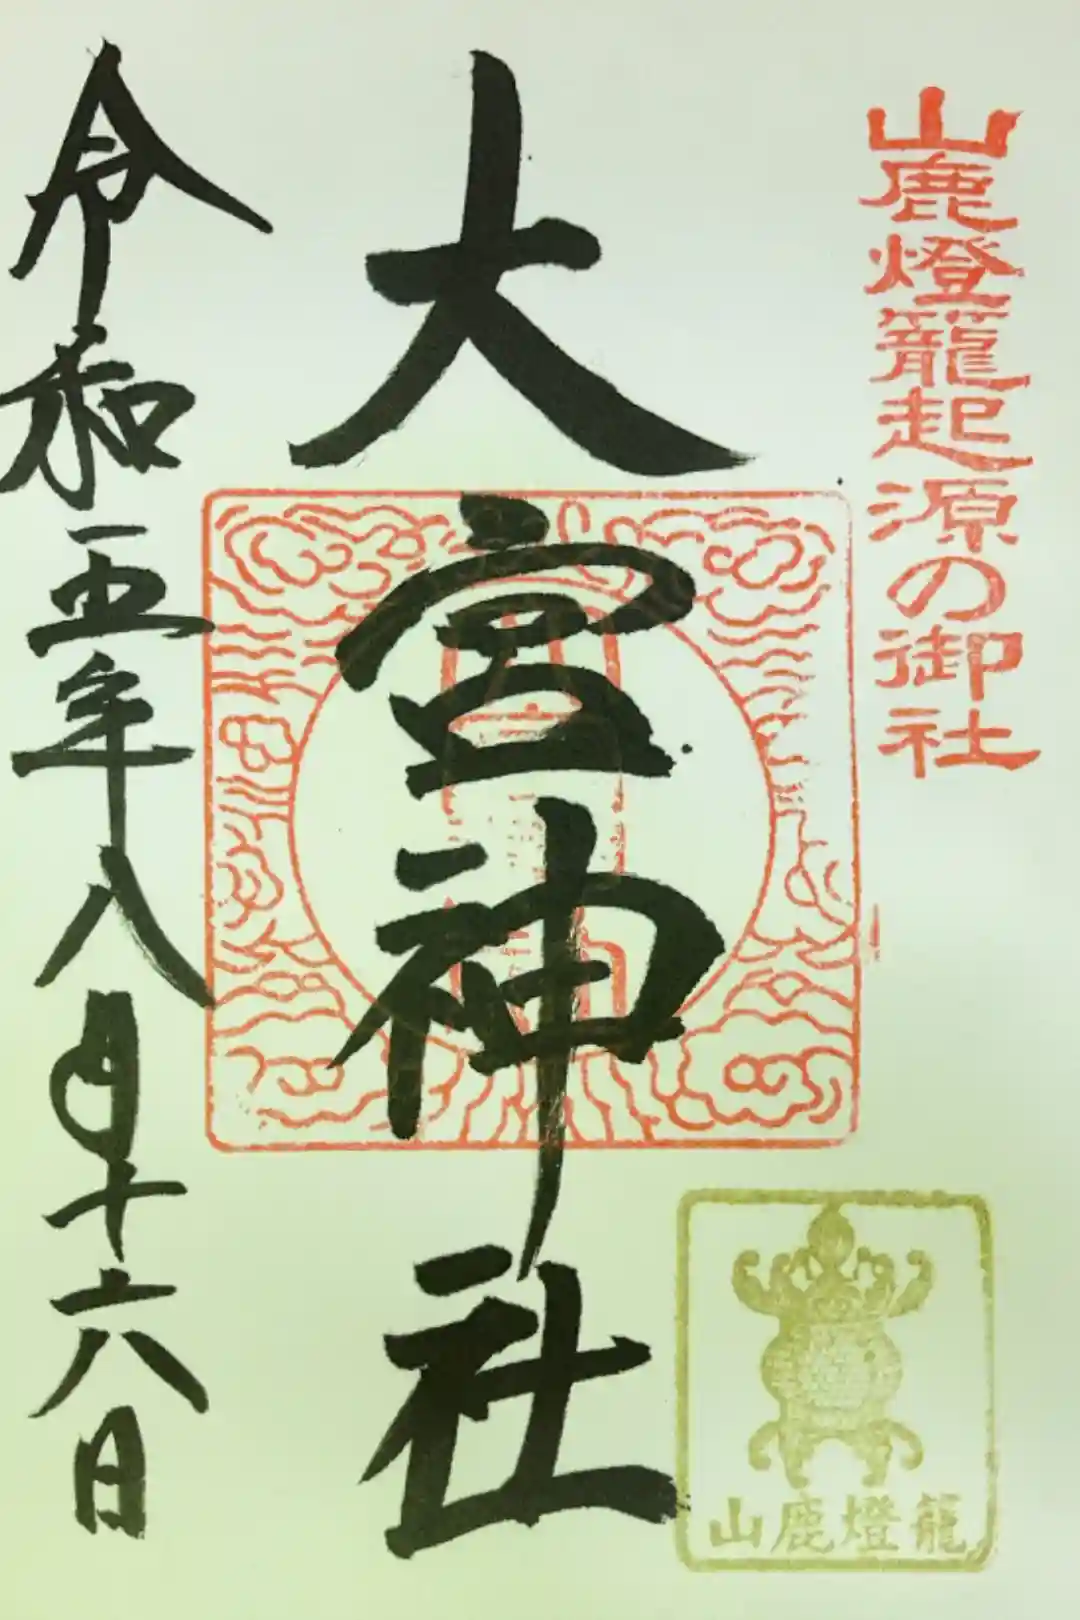 山鹿燈籠起源の御社
大宮神社
令和五年八月十六日
山鹿燈籠